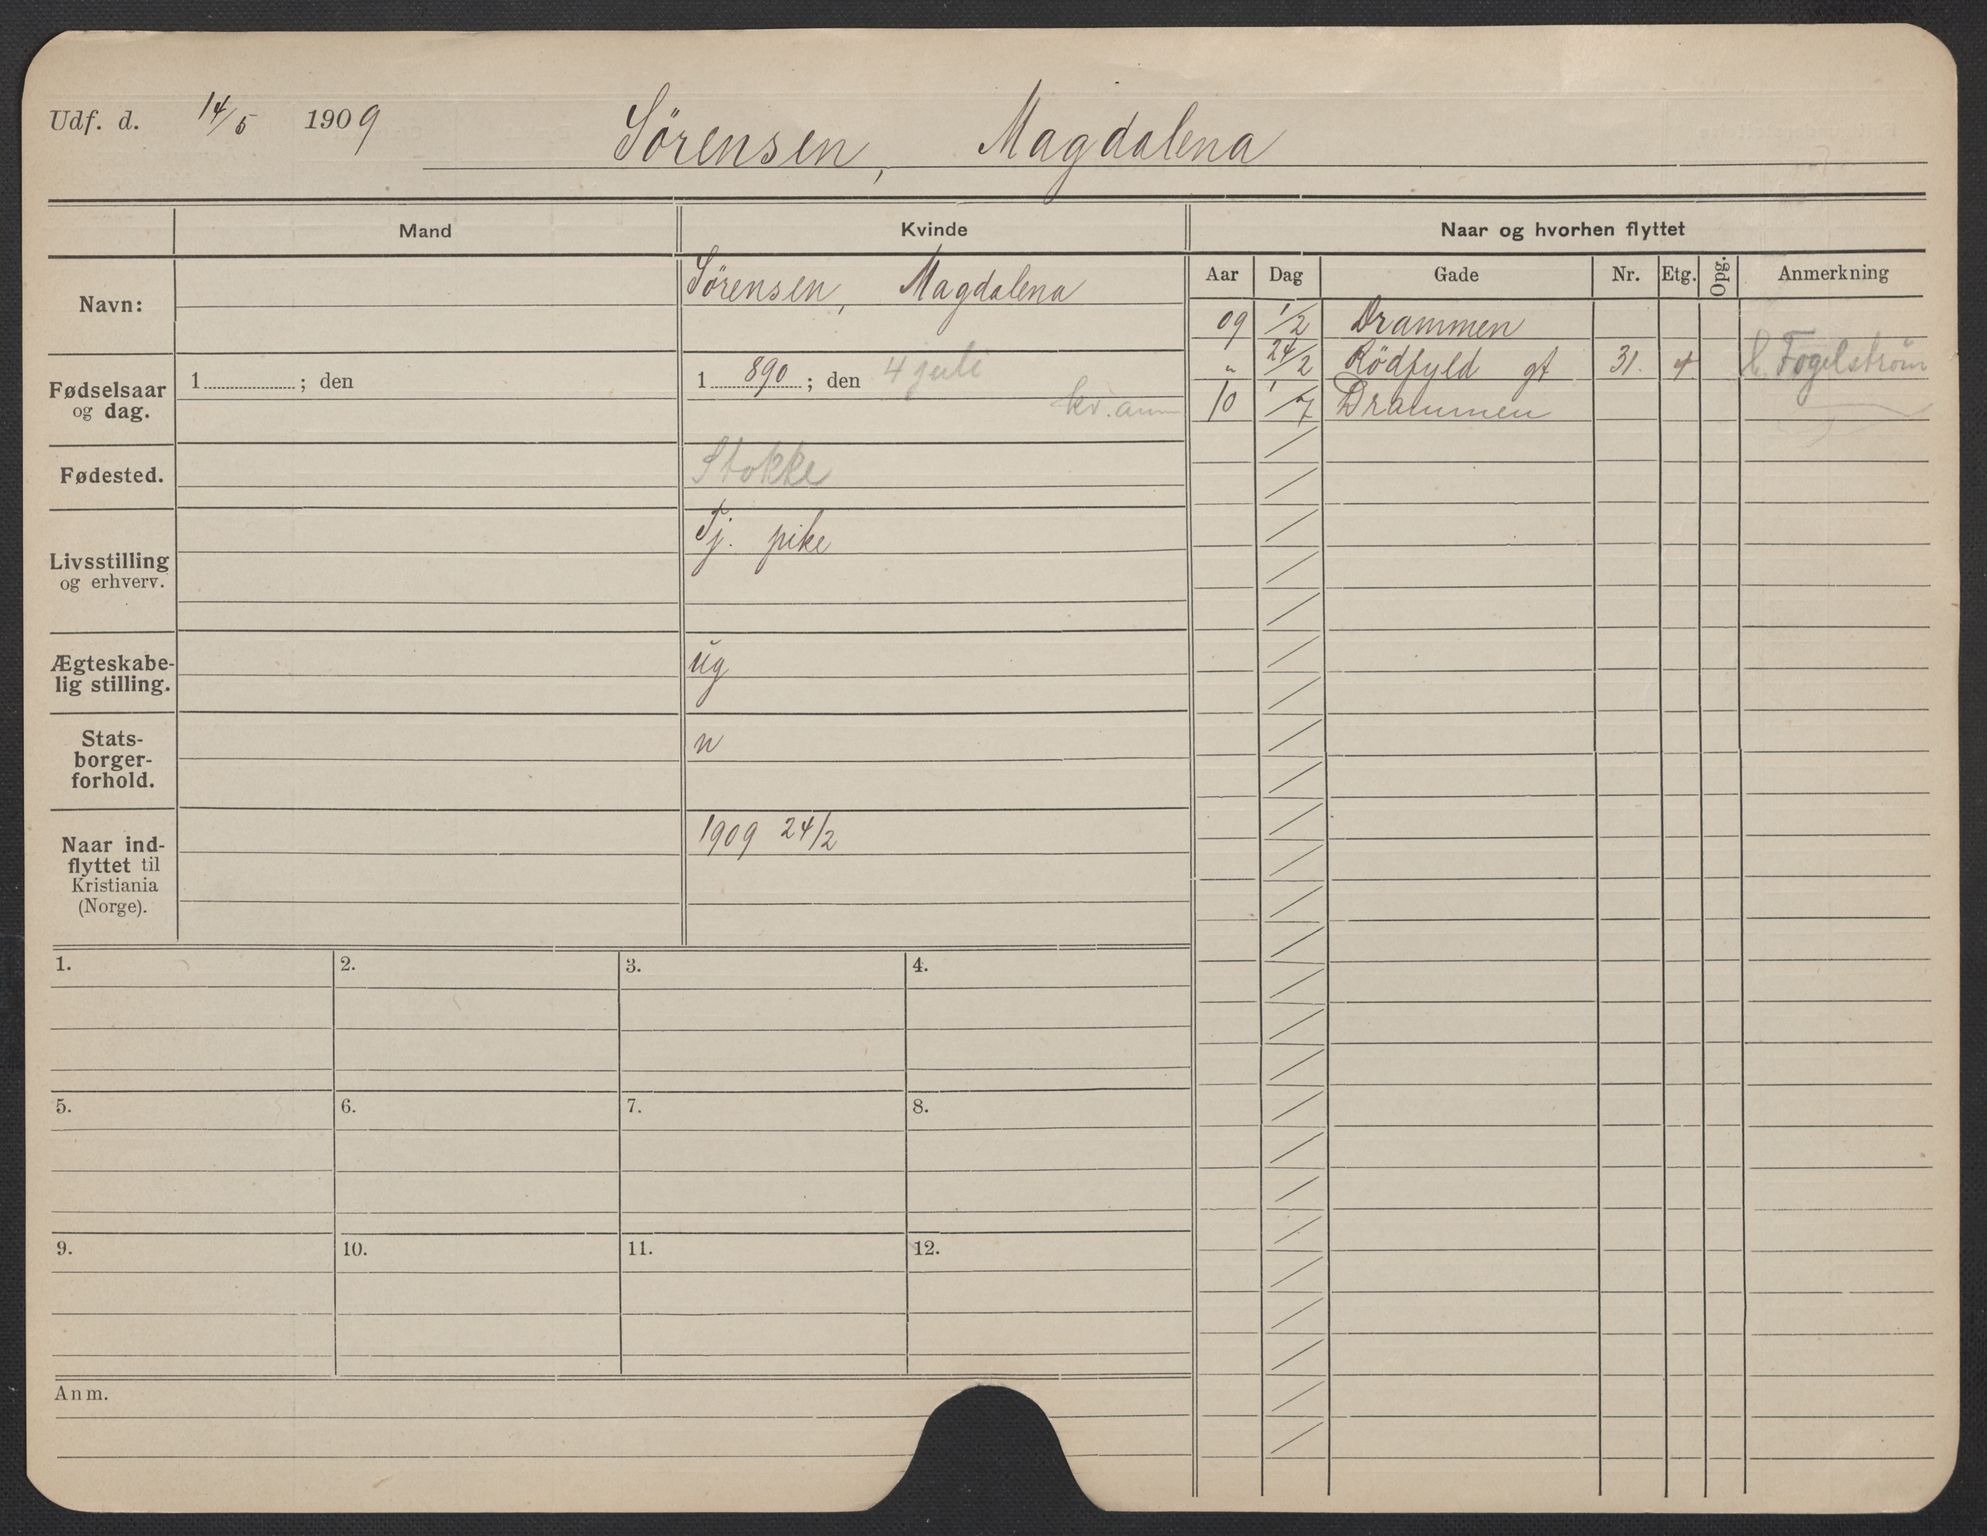 Udf. d. 14/5 1909 Sörensen, Magdalena
Mand Kvinde Naar og hvorhen flyttet
Navn: Sörensen, Magdalena
Aar Dag Gade Nr. Etg. Opg. Anmerkning
09 1/2 Drammen
" 24/2 Rödfyld gt 31. 4 h. Fogelström
10 1/7 Drammen
Fødselsaar
og dag.
1 ; den
1 890 ; den 4 juli
kv. anm
Fødested. Stokke
Livsstilling
og erhverv.
Tj. pike
Ægteskabe-
lig stilling.
ug
Stats-
borger-
forhold.
n
Naar ind-
flyttet til
Kristiania
(Norge).
1909 24/2
1. 2. 3. 4.
5. 6. 7. 8.
9. 10. 11. 12.
Anm.